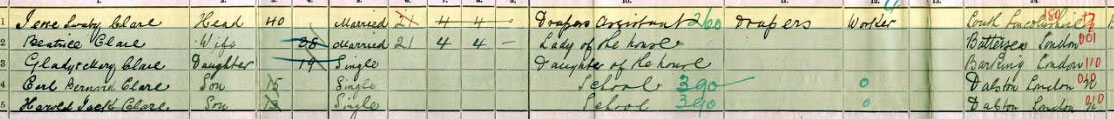 1 Jesse Swaby Clare Head 40 Married 21 4 4 - Drapers Assistant 260 Drapers Worker South Lincolnshire
2 Beatrice Clare Wife 38 Married 21 4 4 - Lady of the house Battersea London 001
3 Gladys Mary Clare Daughter 19 Single Daughter of the house Barking London 110
4 Earl Bernard Clare Son 15 Single School 390 0 Dalston London
5 Harold Jack Clare Son 13 Single School 390 0 Dalston London